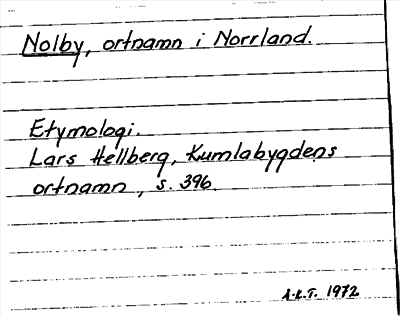 Nolby, ortnamn i Norrland.
Etymologi.
Lars Hellberg, Kumlabygdens
ortnamn, s. 396.
A.L.T. 1972